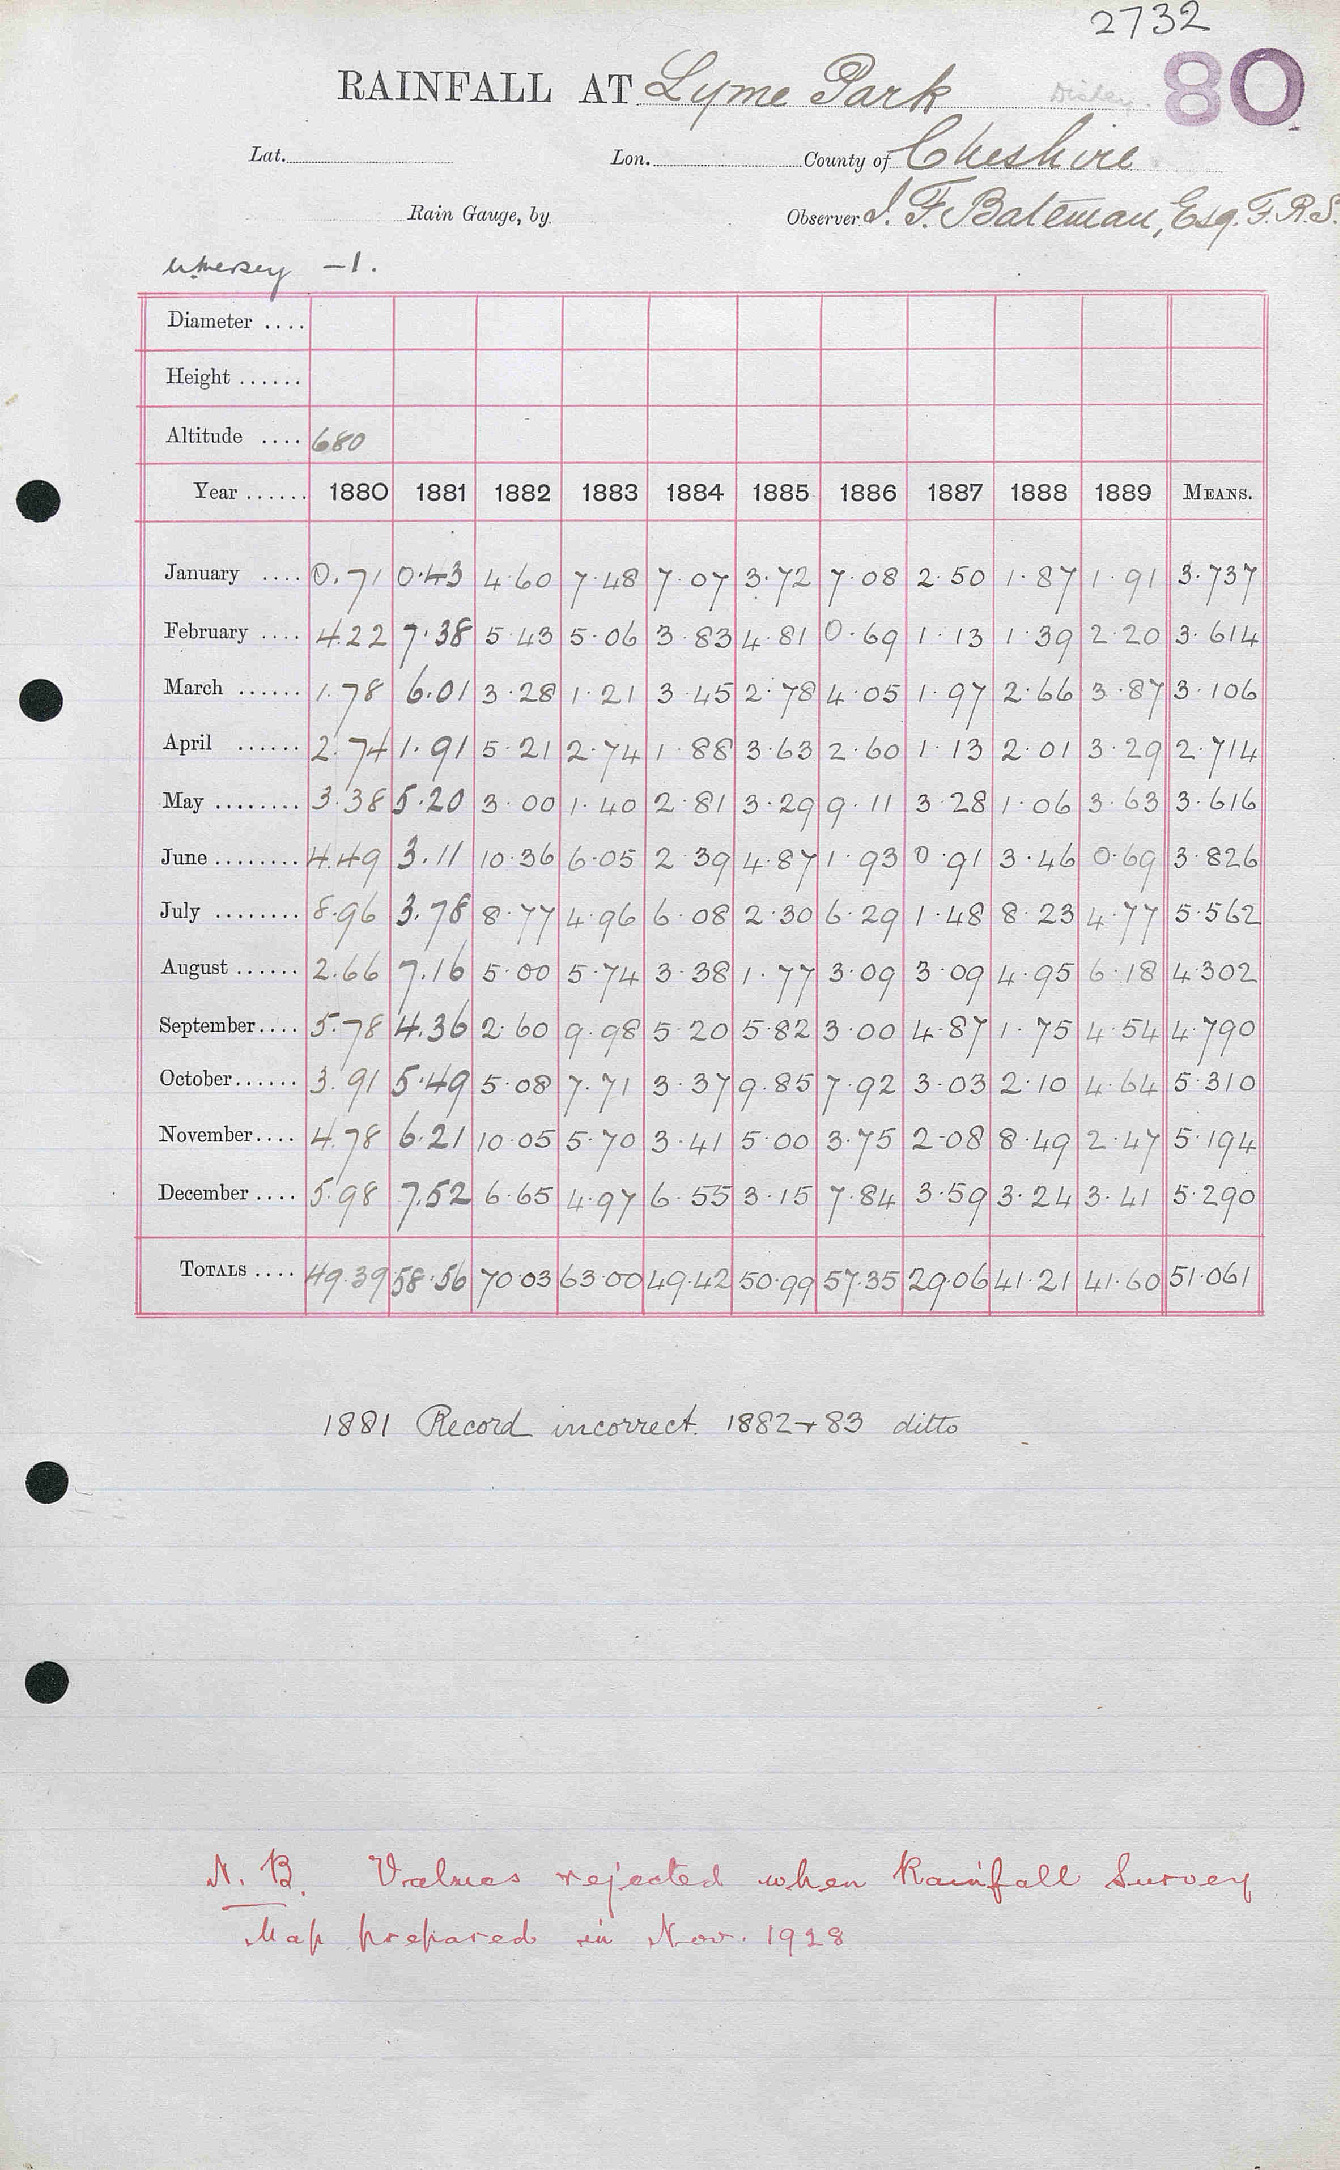 2732
RAINFALL AT Lyme Park Disley. 80
Lat. Lon. County of Cheshire
Rain Gauge, by Observer J. F. Bateman, Esq. F.R.S.
Mersey -1.
Diameter ....
Height ......
Altitude .... 680
Year ...... 1880 1881 1882 1883 1884 1885 1886 1887 1888 1889 MEANS.
January .... 0.71 0.43 4.60 7.48 7.07 3.72 7.08 2.50 1.87 1.91 3.737
February .... 4.22 7.38 5.43 5.06 3.83 4.81 0.69 1.13 1.39 2.20 3.614
March ...... 1.78 6.01 3.28 1.21 3.45 2.78 4.05 1.97 2.66 3.87 3.106
April ...... 2.74 1.91 5.21 2.74 1.88 3.63 2.60 1.13 2.01 3.29 2.714
May ........ 3.38 5.20 3.00 1.40 2.81 3.29 9.11 3.28 1.06 3.63 3.616
June ........ 4.49 3.11 10.36 6.05 2.39 4.87 1.93 0.91 3.46 0.69 3.826
July ........ 8.96 3.78 8.77 4.96 6.08 2.30 6.29 1.48 8.23 4.77 5.562
August ...... 2.66 7.16 5.00 5.74 3.38 1.77 3.09 3.09 4.95 6.18 4.302
September .... 5.78 4.36 2.60 9.98 5.20 5.82 3.00 4.87 1.75 4.54 4.790
October ...... 3.91 5.49 5.08 7.71 3.37 9.85 7.92 3.03 2.10 4.64 5.310
November .... 4.78 6.21 10.05 5.70 3.41 5.00 3.75 2.08 8.49 2.47 5.194
December .... 5.98 7.52 6.65 4.97 6.55 3.15 7.84 3.59 3.24 3.41 5.290
TOTALS .... 49.39 58.56 70.03 63.00 49.42 50.99 57.35 29.06 41.21 41.60 51.061
1881 Record incorrect. 1882 + 83 ditto
N. B. Values rejected when Rainfall Survey
Map prepared in Nov. 1928